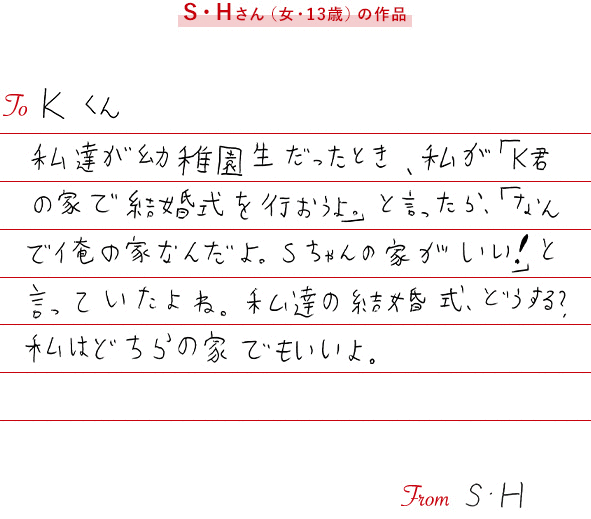 S・Hさん（女・13歳）の作品
To K くん
私達が幼稚園生だったとき、私が「K君
の家で結婚式を行おうよ。」と言ったら、「なん
で俺の家なんだよ。Sちゃんの家がいい!」と
言っていたよね。私達の結婚式、どうする?
私はどちらの家でもいいよ。
From S・H